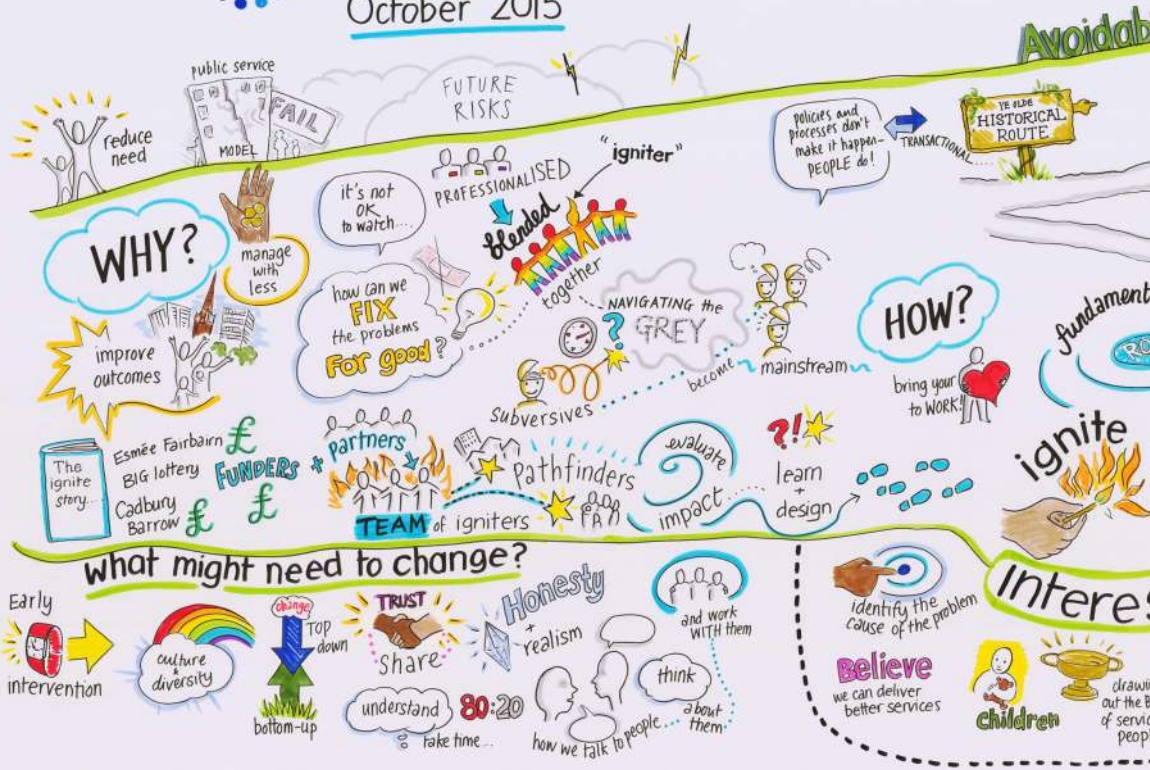 October 2015
Avoidab
public service
MODEL
FAIL
FUTURE
RISKS
reduce
need
policies and
processes don't
make it happen-
PEOPLE do!
TRANSACTIONAL....
YE OLDE
HISTORICAL
ROUTE
WHY?
manage
with
less
it's not
OK
to watch...
PROFESSIONALISED
"igniter"
blended
together
how can we
FIX
the problems
For good?
improve
outcomes
NAVIGATING the
GREY
?
Subversives
become
mainstream
HOW?
bring your
to WORK!
fundament
RO
The
ignite
story...
Esmée Fairbairn £
BIG lottery
Cadbury
Barrow £
£
FUNDERS + Partners
TEAM of igniters
Pathfinders
evaluate
impact
?!
learn
+
design
ignite
what might need to change?
Interes
Early
intervention
culture
&
diversity
change
TOP
down
bottom-up
TRUST
share
Honesty
+
realism
understand
take time...
80:20
how we talk to people
think
about
them
and work
WITH them
identify the
cause of the problem
Believe
we can deliver
better services
children
drawi
out the B
of servic
peop